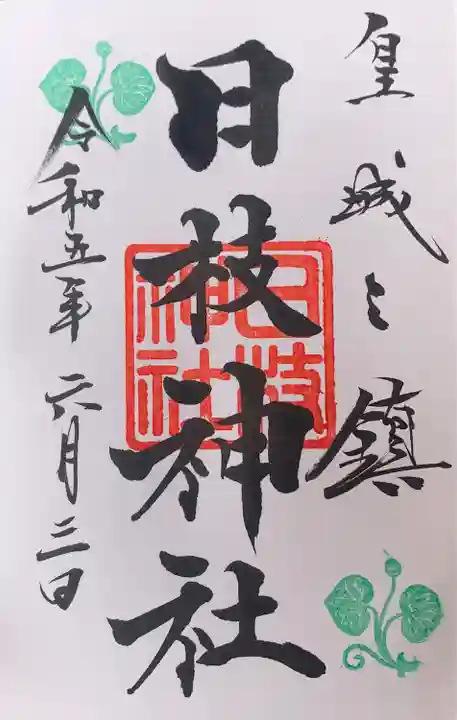 皇城之鎮
日枝神社
日枝神社
令和五年六月三日